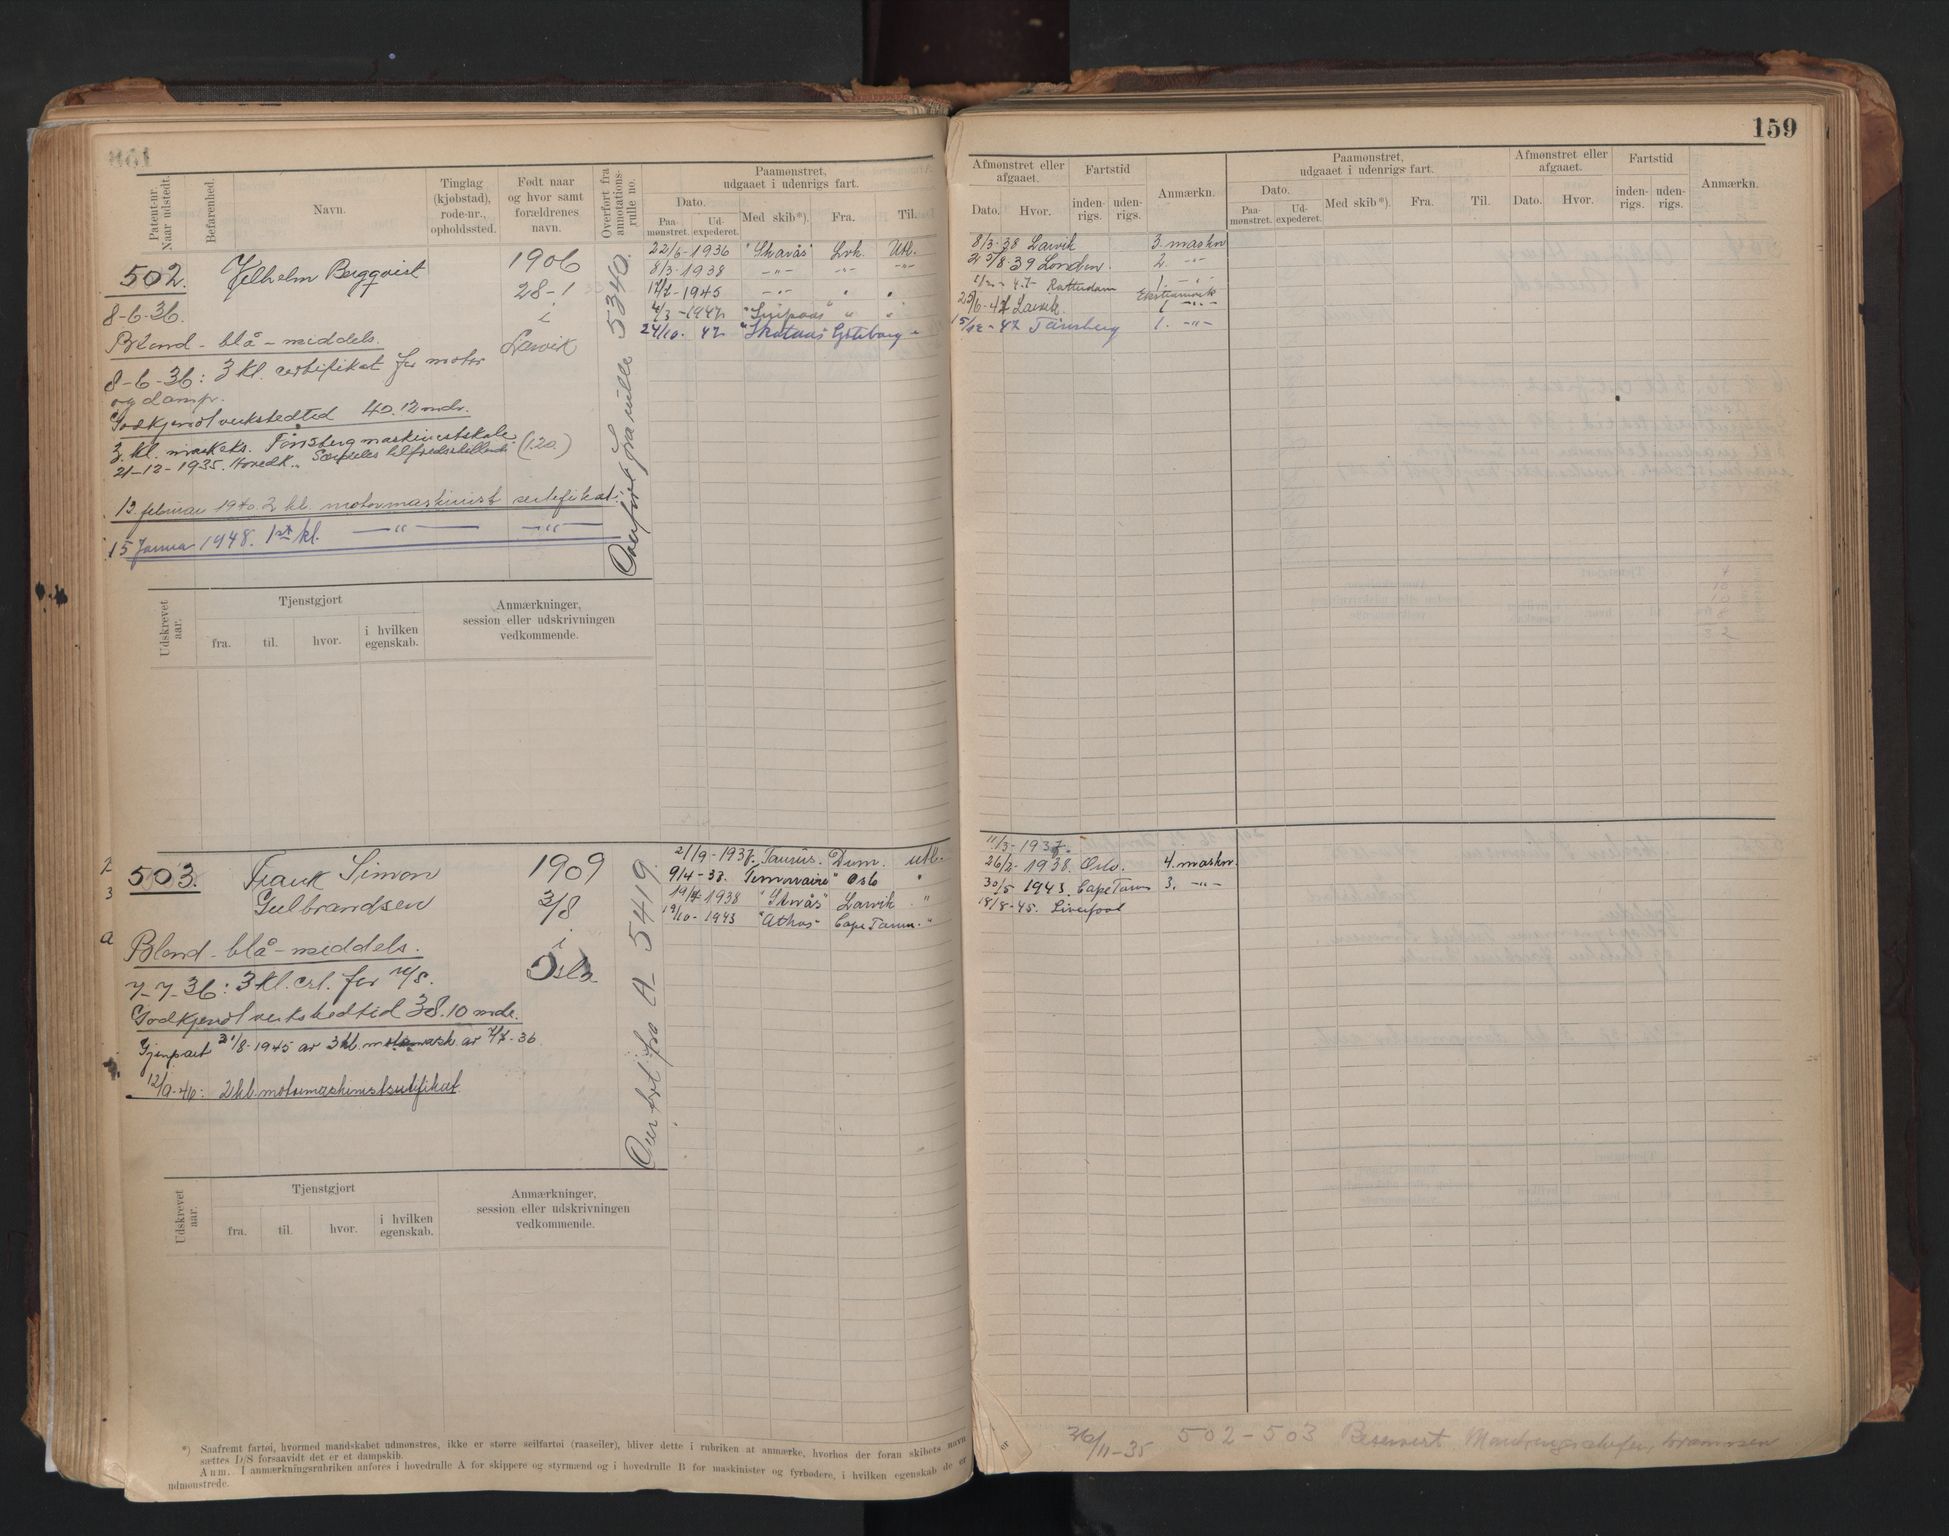 159
Patent-nr. Naar udstedt.
Befarenhed.
Navn.
Tinglag (kjøbstad), rode-nr., opholdssted.
Født naar og hvor samt forældrenes navn.
Overført fra annotations-rulle no.
Paamønstret, udgaaet i udenrigs fart.
Dato.
Paa-mønstret.
Ud-expederet.
Med skib*).
Fra.
Til.
Afmønstret eller afgaaet.
Dato.
Hvor.
Fartstid
inden-rigs.
uden-rigs.
Anmærkn.
Paamønstret, udgaaet i udenrigs fart.
Dato.
Paa-mønstret.
Ud-expederet.
Med skib*).
Fra.
Til.
Afmønstret eller afgaaet.
Dato.
Hvor.
Fartstid
inden-rigs.
uden-rigs.
Anmærkn.
502. Vilhelm Bergqvist 1906
28-1
i
Larvik
8-6-36.
Blond - blå - middels.
8-6-36: 3 kl. certifikat for motor
og damp.
Godkjent verkstedtid 40.12 mdr.
3 kl. maskeks. Tønsberg maskinistskole
21-12-1935. Hovedk.. Særdeles tilfredsstillende (1.20)
13. februar 1940. 2 kl. motormaskinist sertifikat.
15 Januar 1948. 1st kl. —"— —"—
Overført fra rulle 5340.
22/6-1936 "Skaraas" Lvk. Utl.
8/3-1938 -"- -"- -"-
-1945 -"- " "
4/3-1947 " "
24/10. 47 "Skotaas" Gøteborg "
8/3-38 Larvik 3. maskn
23/8-39 London. 2. -"-
-47- Rotterdam 1. -"-
25/6-47 Larvik. 1 -"-
15/12-47 Tønsberg 1. -"-
Udskrevet aar.
Tjenstgjort
fra.
til.
hvor.
i hvilken egenskab.
Anmærkninger, session eller udskrivningen vedkommende.
503. Frank Simon 1909
Gulbrandsen 3/8
i
Oslo
Blond - blå - middels.
7-7-36: 3 kl. crt. for m/s.
Godkjent verkstedtid 38.10 mdr.
Gjenpart 21/8-1945 av 3 kl. motormask. av 7/7-36
12/9-46: 2 kl. motormaskinistsertifikat
Overført fra A 5419.
21/9-1937. Taurus. Dram. utl.
9/4-38. "Temeraire" Oslo "
1938 "Skrås" Larvik "
19/10-1943 "Athos" Cape Town "
11/3-1937.
26/2-1938. Oslo. 4. maskn.
30/5 1943. Cape Town 3. -"-
18/8-45. Liverpool
Udskrevet aar.
Tjenstgjort
fra.
til.
hvor.
i hvilken egenskab.
Anmærkninger, session eller udskrivningen vedkommende.
*) Saafremt fartøi, hvormed mandskabet udmønstres, ikke er større seilfartøi (raaseiler), bliver dette i rubriken at anmærke, hvorhos der foran skibets navn
sættes D/S forsaavidt det er et dampskib.
Anm. I anmærkningsrubriken anføres i hovedrulle A for skippere og styrmænd og i hovedrulle B for maskinister og fyrbødere, i hvilken egenskab de er
udmønstrede.
26/11-35 502-503 Reservert Mønstringschefen, Drammen